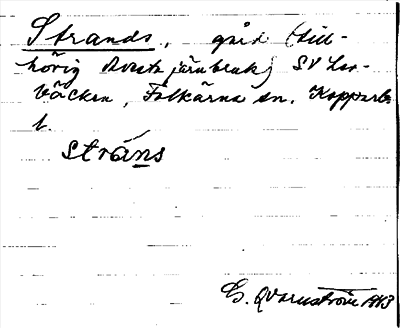 Strands, gård (till-
hörig Avesta järnbruk) SV
bäcken, Folkärna sn. Kopparb.
l.
stráns
G. Qvarnström 1943